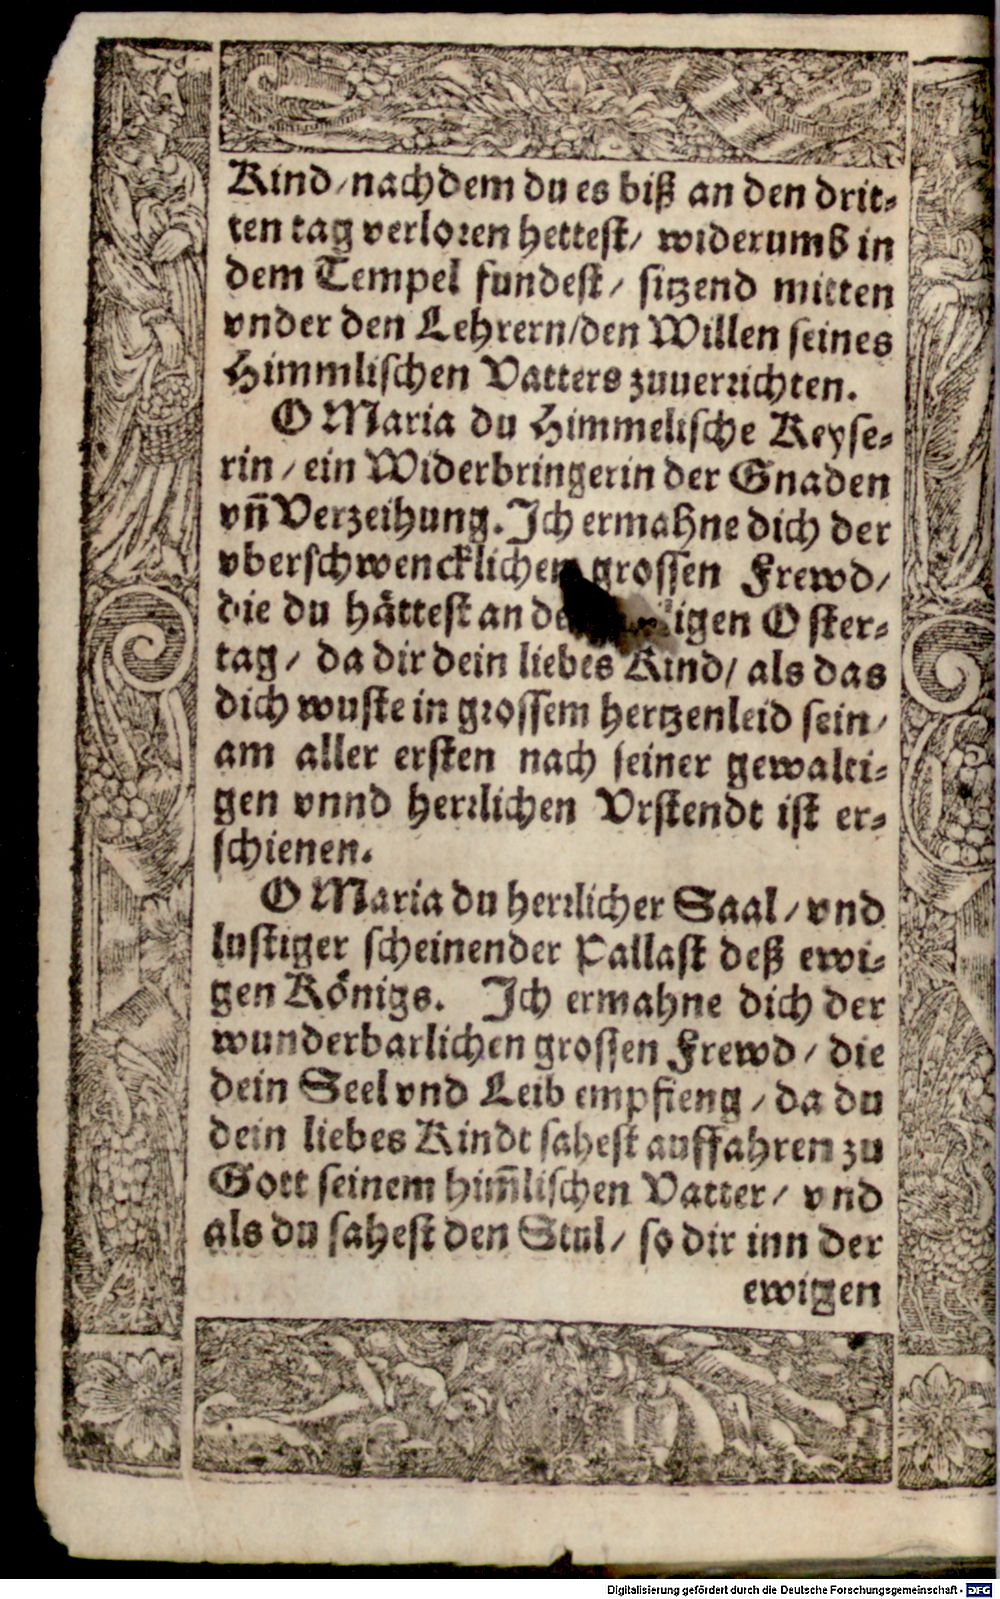 Kind/nachdem du es biß an den drit-
ten tag verloren hettest/ widerumb in
dem Tempel fundest/ sitzend mitten
vnder den Lehrern/den Willen seines
Himmlischen Vatters zuuerrichten.
O Maria du Himmelische Keyse-
rin/ein Widerbringerin der Gnaden
vñ Verzeihung. Ich ermahne dich der
vberschwencklichen grossen Frewd/
die du håttest an Oster-
tag/ da dir dein liebes Kind/ als das
dich wuste in grossem hertzenleid sein/
am aller ersten nach seiner gewalti-
gen vnnd herrlichen Vrstendt ist er-
schienen.
O Maria du herrlicher Saal/vnd
lustiger scheinender Pallast deß ewi-
gen Königs. Ich ermahne dich der
wunderbarlichen grossen Frewd/ die
dein Seel vnd Leib empfieng/da du
dein liebes Kindt sahest auffahren zu
Gott seinem him̃lischen Vatter/ vnd
als du sahest den Stul/ so dir inn der
ewigen
Digitalisierung gefördert durch die Deutsche Forschungsgemeinschaft - DFG